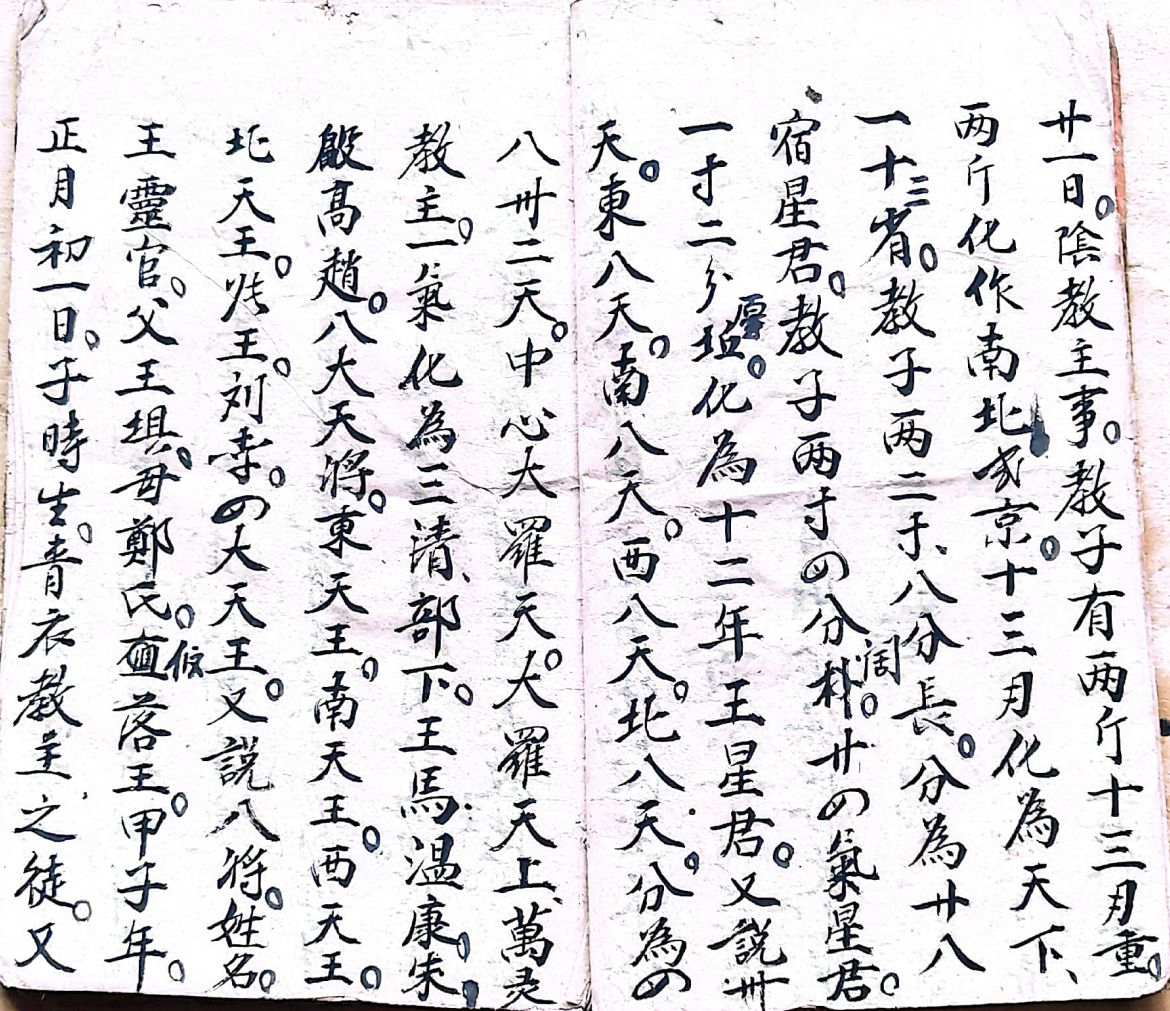 廿一日。陰教主事。教子有两斤十三月重。
两斤化作南北弍京。十三月化為天下、
一十三省。教子两二于、八分長。分為廿八
宿星君。教子两寸の分阔。廿の氣星君。
一寸二分厚。化為十二年王星君。又説卅
天。東八天。南八天。西八天。北八天。分為の
八卅二天。中心大羅天。大羅天上、萬灵
教主。一氣化為三清、部下。王馬温康。朱
殷高趙。八大天将。東天王。南天王。西天王。
北天王。王。刘李。の大天王。又説八将。姓名。
王靈官。父王堪。母鄭氏。落王。甲子年。
正月初一日。子時生。青衣教主之徒。又